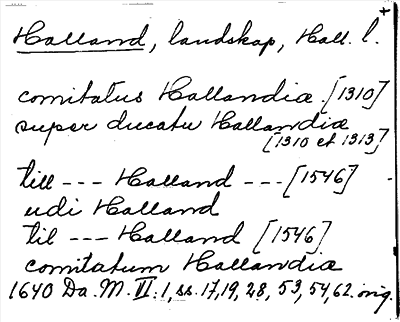 Halland, landskap, Hall. l.
comitatus Hallandiæ [1310]
super ducatu Hallandiæ
[1310 et 1313]
till --- Halland --- [1546]
udi Halland
til --- Halland [1546]
comitatum Hallandiæ
1640 Da. M. VI: 1, ss. 17, 19, 28, 53, 54, 62. orig.